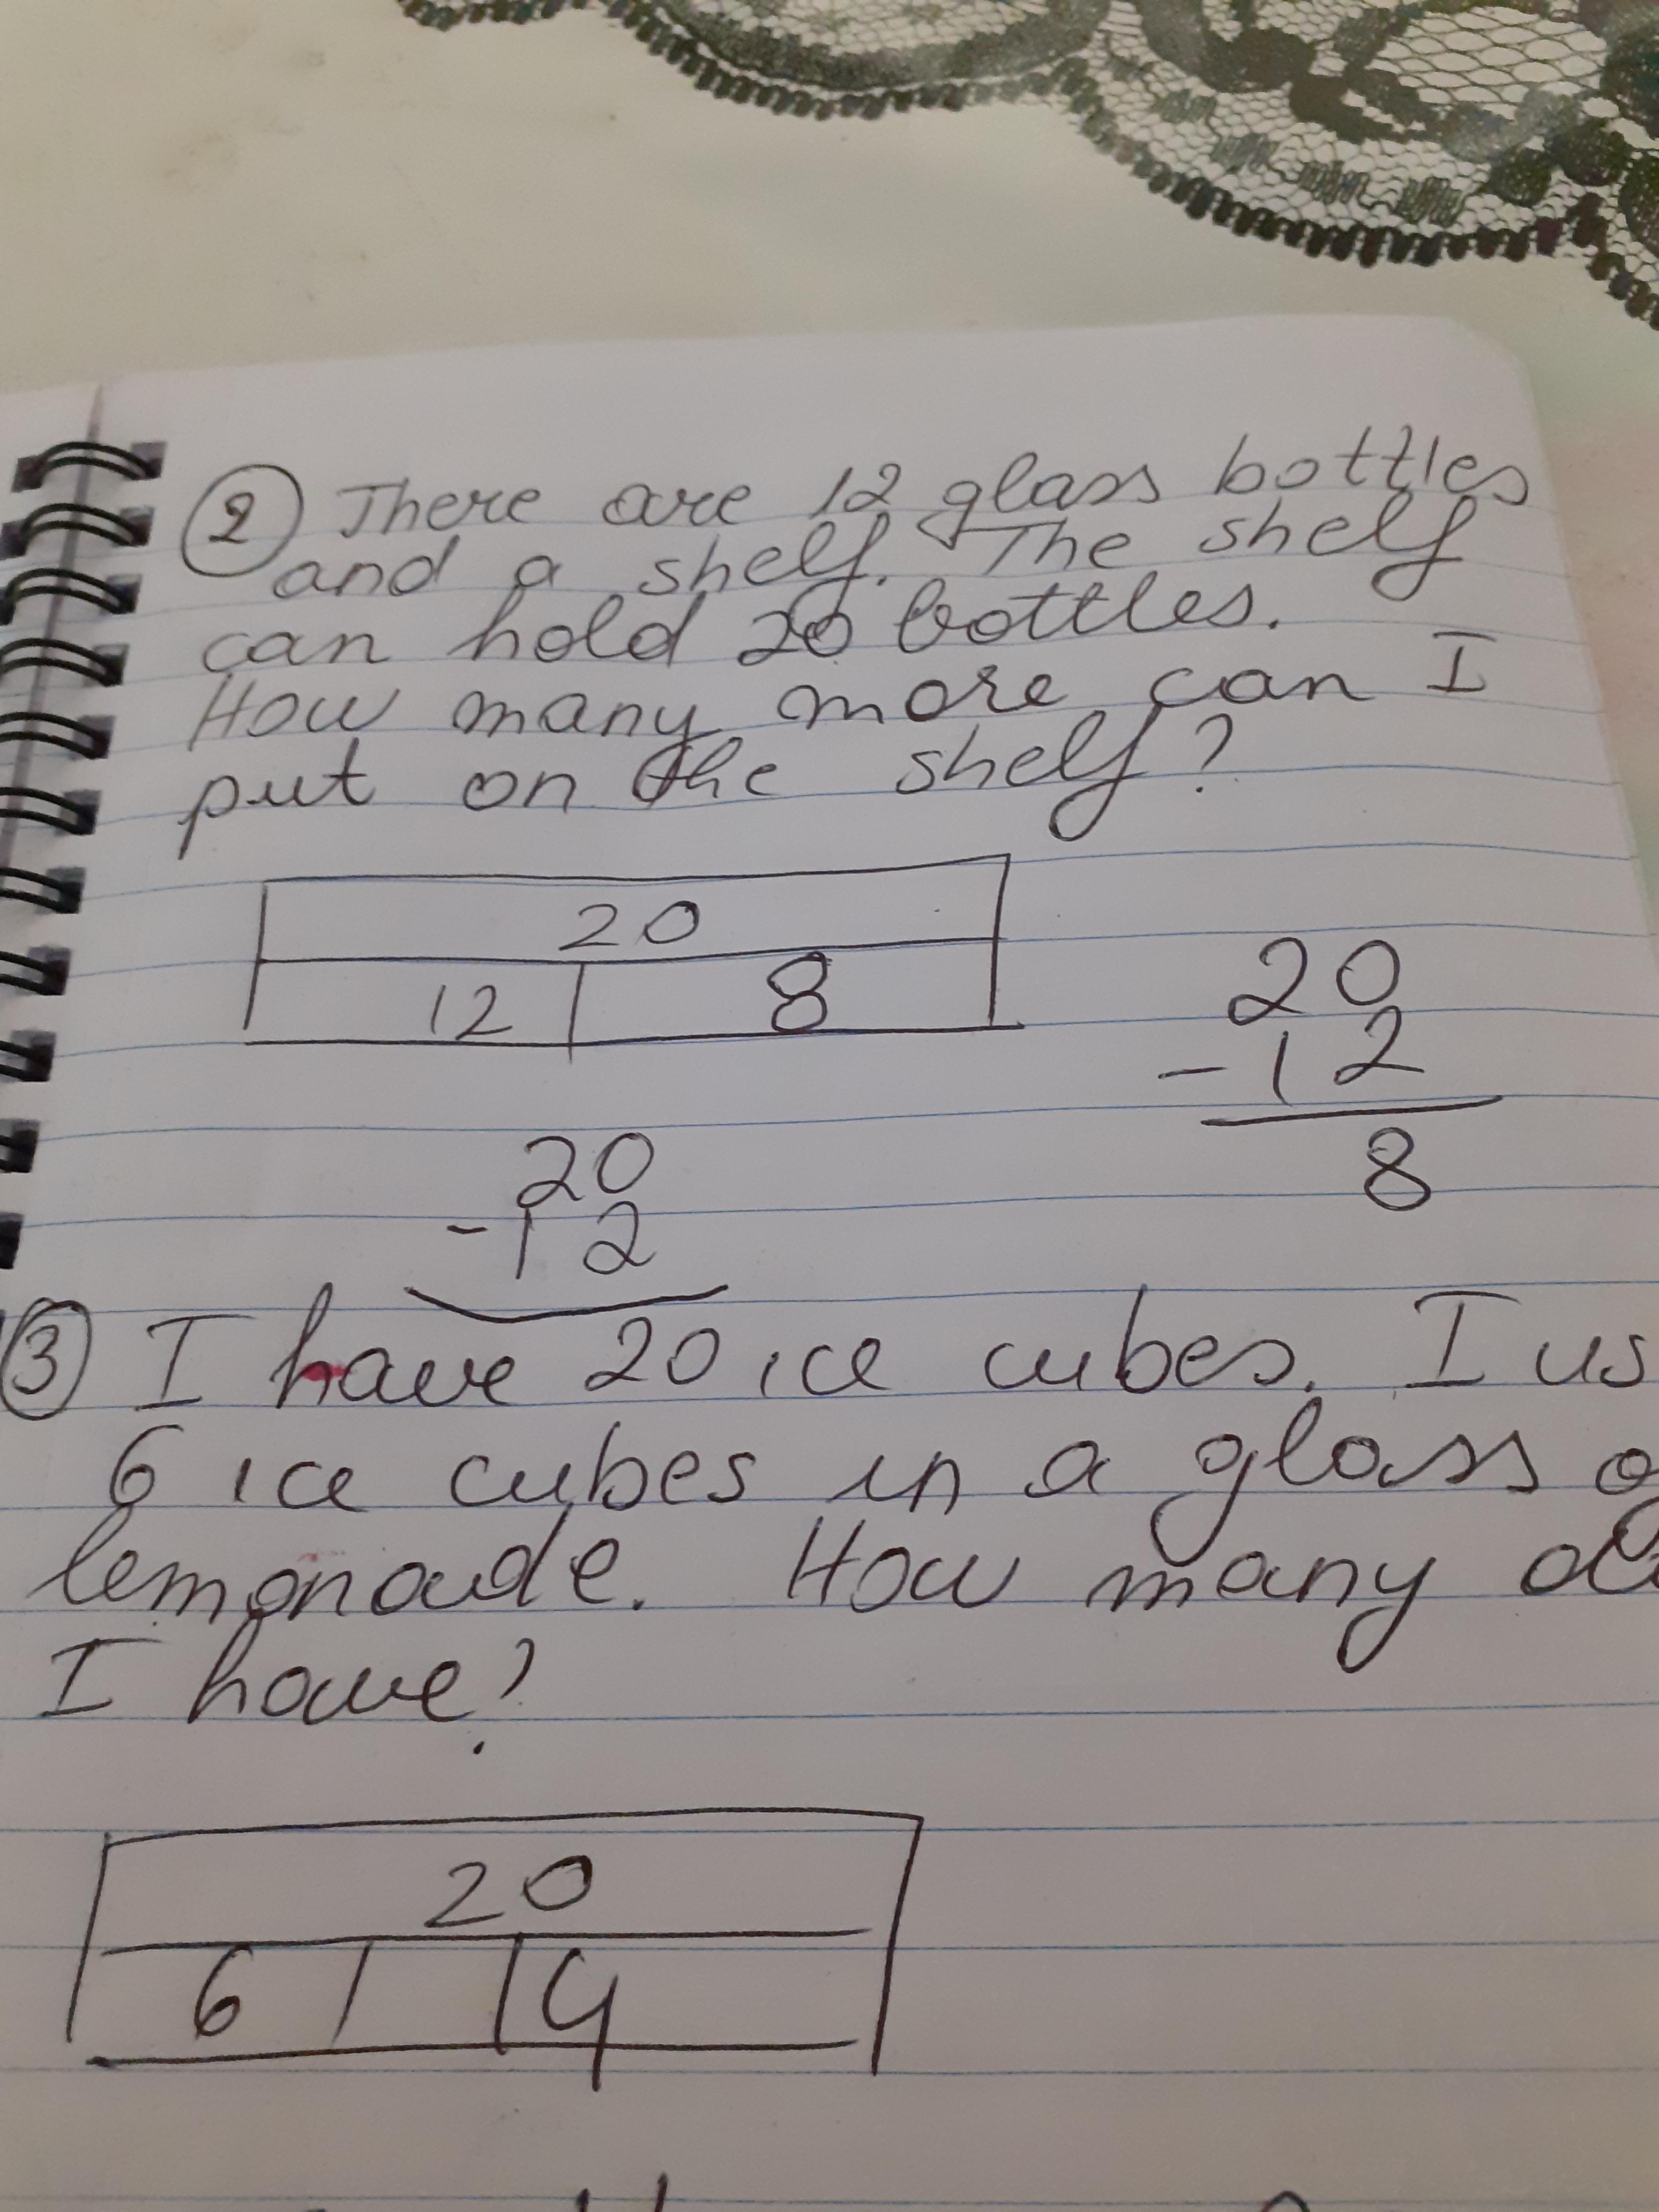 2 There are 12 glass bottles
and a shelf. The shelf
can hold 20 bottles.
How many more can I
put on the shelf?
20
12 8
20
-12
8
20
-12
3 I have 20 ice cubes. I us
6 ice cubes in a glass o
lemonade. How many
I have?
20
6 14